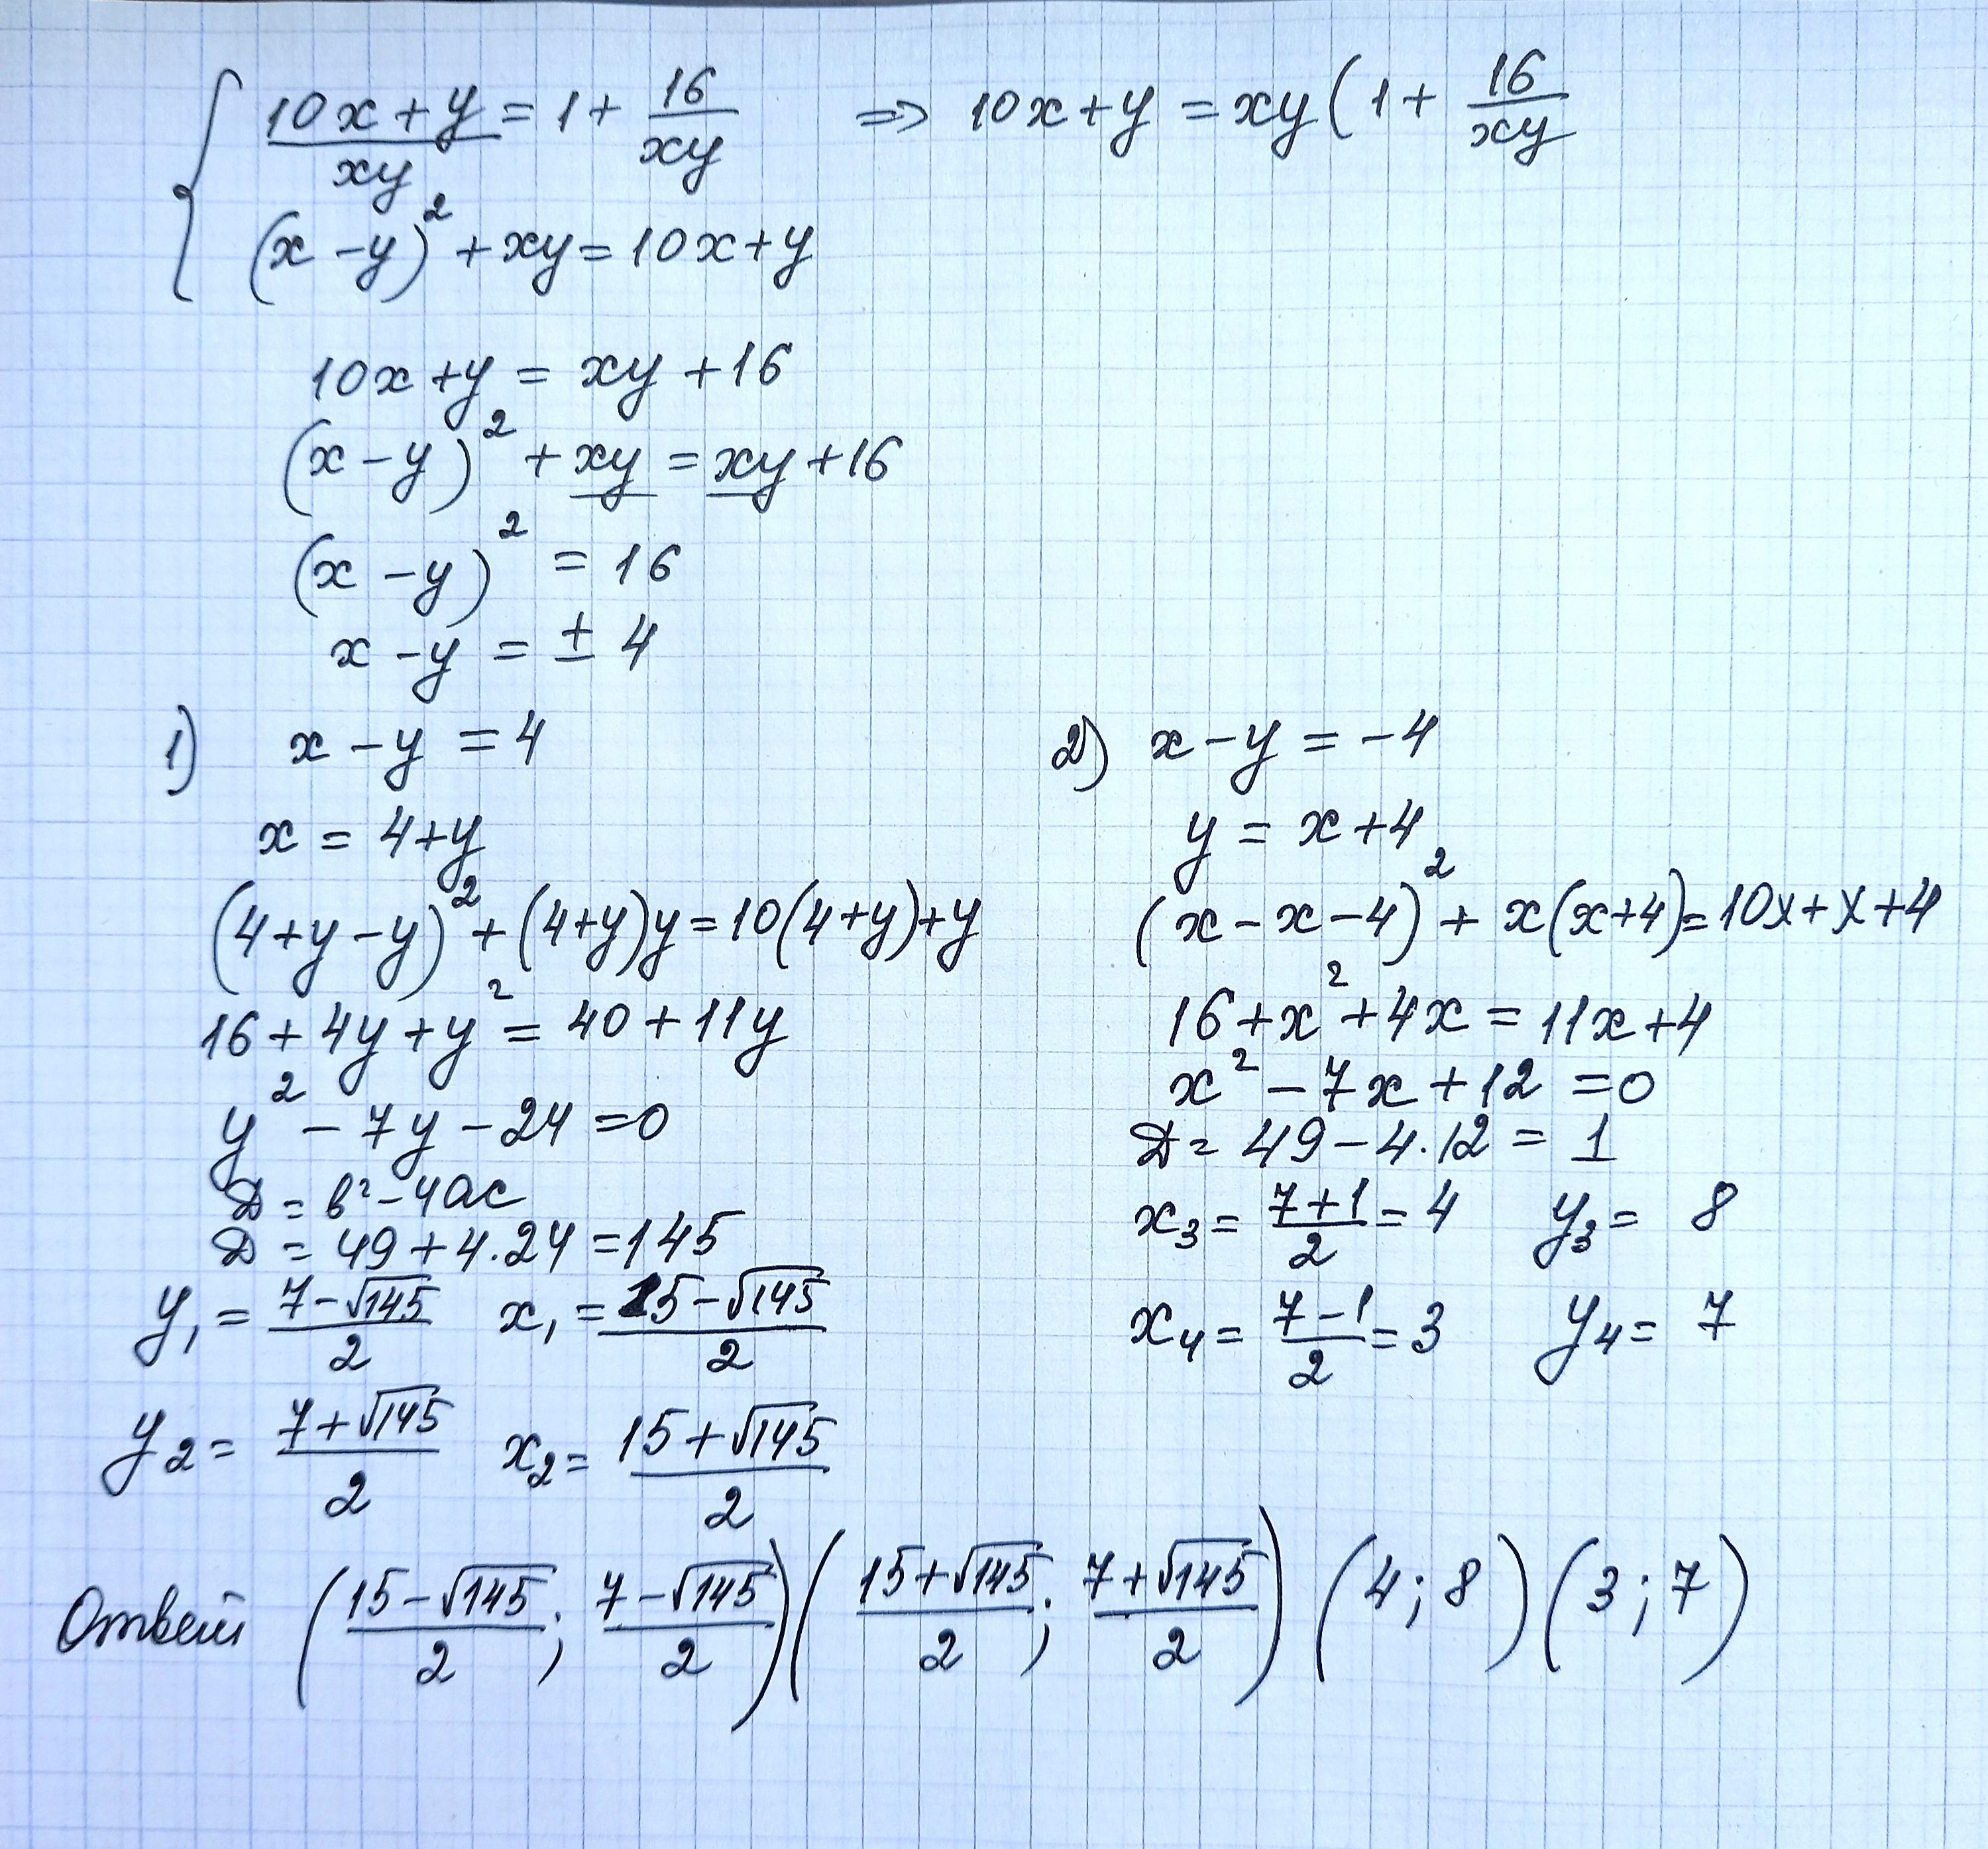 { (10x+y)/xy = 1 + 16/xy => 10x+y = xy(1 + 16/xy
(x-y)² + xy = 10x+y
10x+y = xy+16
(x-y)² + xy = xy+16
(x-y)² = 16
x-y = ±4
1) x-y = 4
x = 4+y
(4+y-y)² + (4+y)y = 10(4+y)+y
16+4y+y² = 40+11y
y² - 7y - 24 = 0
D = b² - 4ac
D = 49+4·24 = 145
y₁ = (7-√145)/2 x₁ = (15-√145)/2
y₂ = (7+√145)/2 x₂ = (15+√145)/2
2) x-y = -4
y = x+4
(x-x-4)² + x(x+4) = 10x+x+4
16+x²+4x = 11x+4
x² - 7x + 12 = 0
D = 49-4·12 = 1
x₃ = (7+1)/2 = 4 y₃ = 8
x₄ = (7-1)/2 = 3 y₄ = 7
Ответ ((15-√145)/2; (7-√145)/2) ((15+√145)/2; (7+√145)/2) (4; 8) (3; 7)